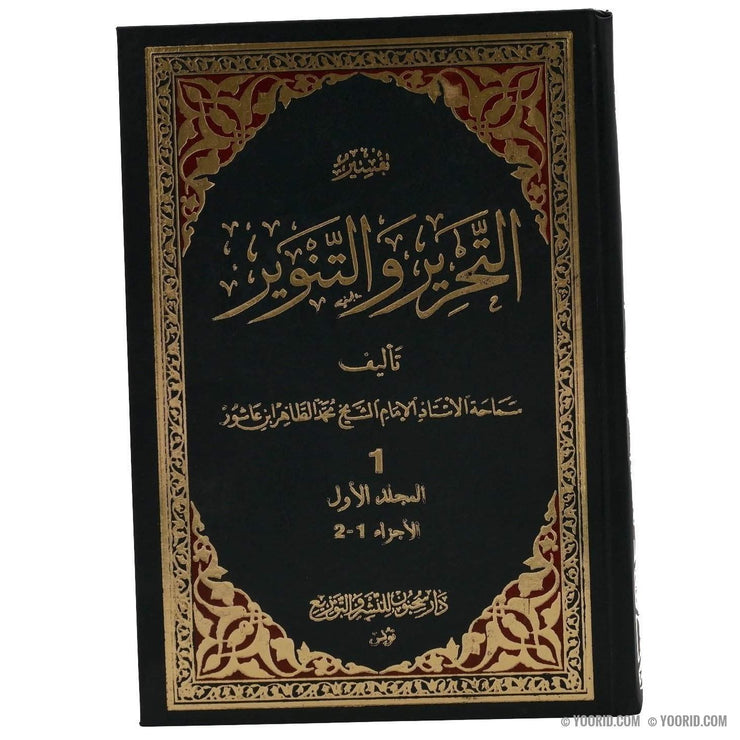 تفسير
التحرير والتنوير
تأليف
سماحة الأستاذ الإمام الشيخ محمد الطاهر ابن عاشور
1
المجلد الأول
الأجزاء 1-2
دار سحنون للنشر والتوزيع
تونس
© YOORID.COM © YOORID.COM